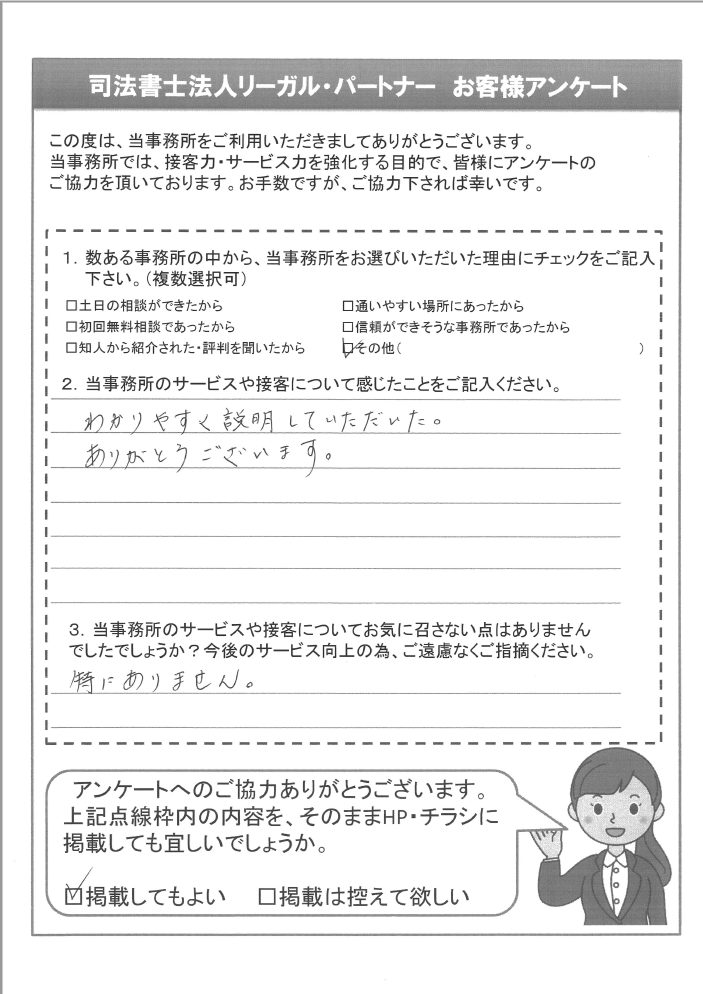 司法書士法人リーガル・パートナー　お客様アンケート
この度は、当事務所をご利用いただきましてありがとうございます。
当事務所では、接客力・サービス力を強化する目的で、皆様にアンケートの
ご協力を頂いております。お手数ですが、ご協力下されば幸いです。
1. 数ある事務所の中から、当事務所をお選びいただいた理由にチェックをご記入
下さい。（複数選択可）
□土日の相談ができたから　□通いやすい場所にあったから
□初回無料相談であったから　□信頼ができそうな事務所であったから
□知人から紹介された・評判を聞いたから　☑その他（　）
2. 当事務所のサービスや接客について感じたことをご記入ください。
わかりやすく説明していただいた。
ありがとうございます。
3. 当事務所のサービスや接客についてお気に召さない点はありません
でしたでしょうか？今後のサービス向上の為、ご遠慮なくご指摘ください。
特にありません。
アンケートへのご協力ありがとうございます。
上記点線枠内の内容を、そのままHP・チラシに
掲載しても宜しいでしょうか。
☑掲載してもよい　□掲載は控えて欲しい